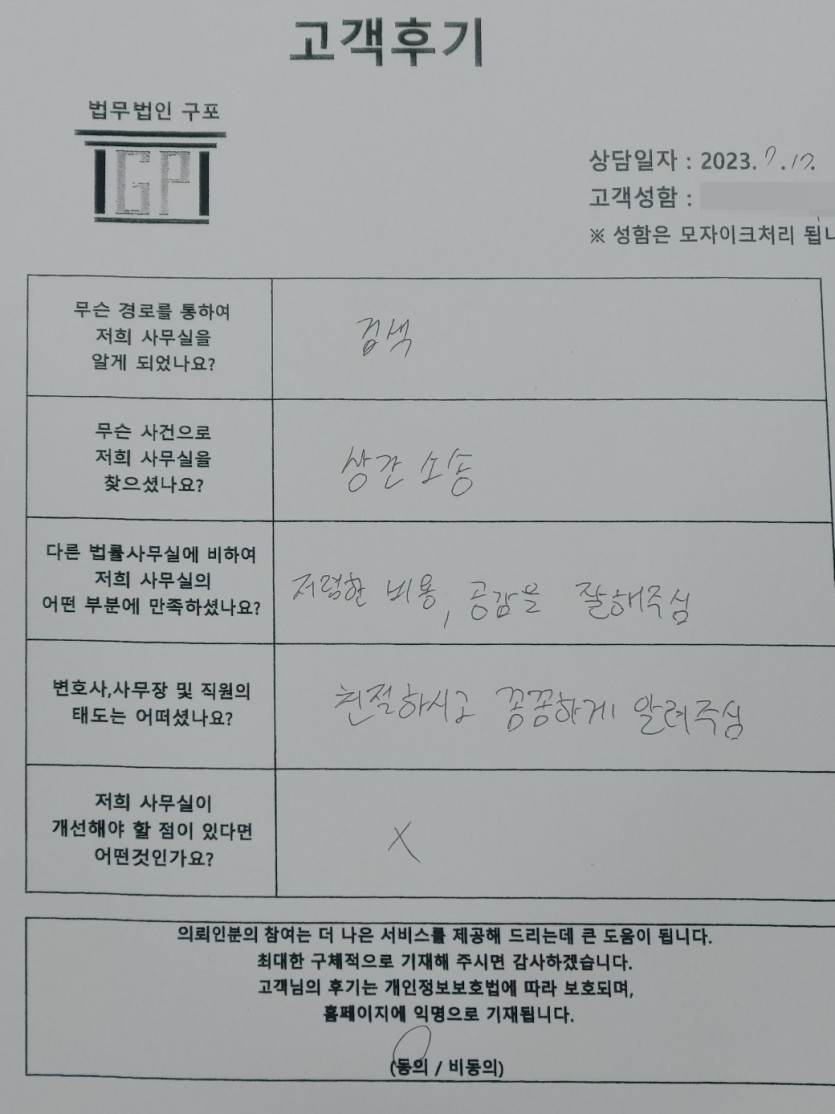 고객후기
법무법인 구포
GP
상담일자 : 2023. 7. 17.
고객성함 :
※ 성함은 모자이크처리 됩니
무슨 경로를 통하여
저희 사무실을
알게 되었나요?
검색
무슨 사건으로
저희 사무실을
찾으셨나요?
상간 소송
다른 법률사무실에 비하여
저희 사무실의
어떤 부분에 만족하셨나요?
저렴한 비용, 공감을 잘해주심
변호사,사무장 및 직원의
태도는 어떠셨나요?
친절하시고 꼼꼼하게 알려주심
저희 사무실이
개선해야 할 점이 있다면
어떤것인가요?
X
의뢰인분의 참여는 더 나은 서비스를 제공해 드리는데 큰 도움이 됩니다.
최대한 구체적으로 기재해 주시면 감사하겠습니다.
고객님의 후기는 개인정보보호법에 따라 보호되며,
홈페이지에 익명으로 기재됩니다.
(동의 / 비동의)